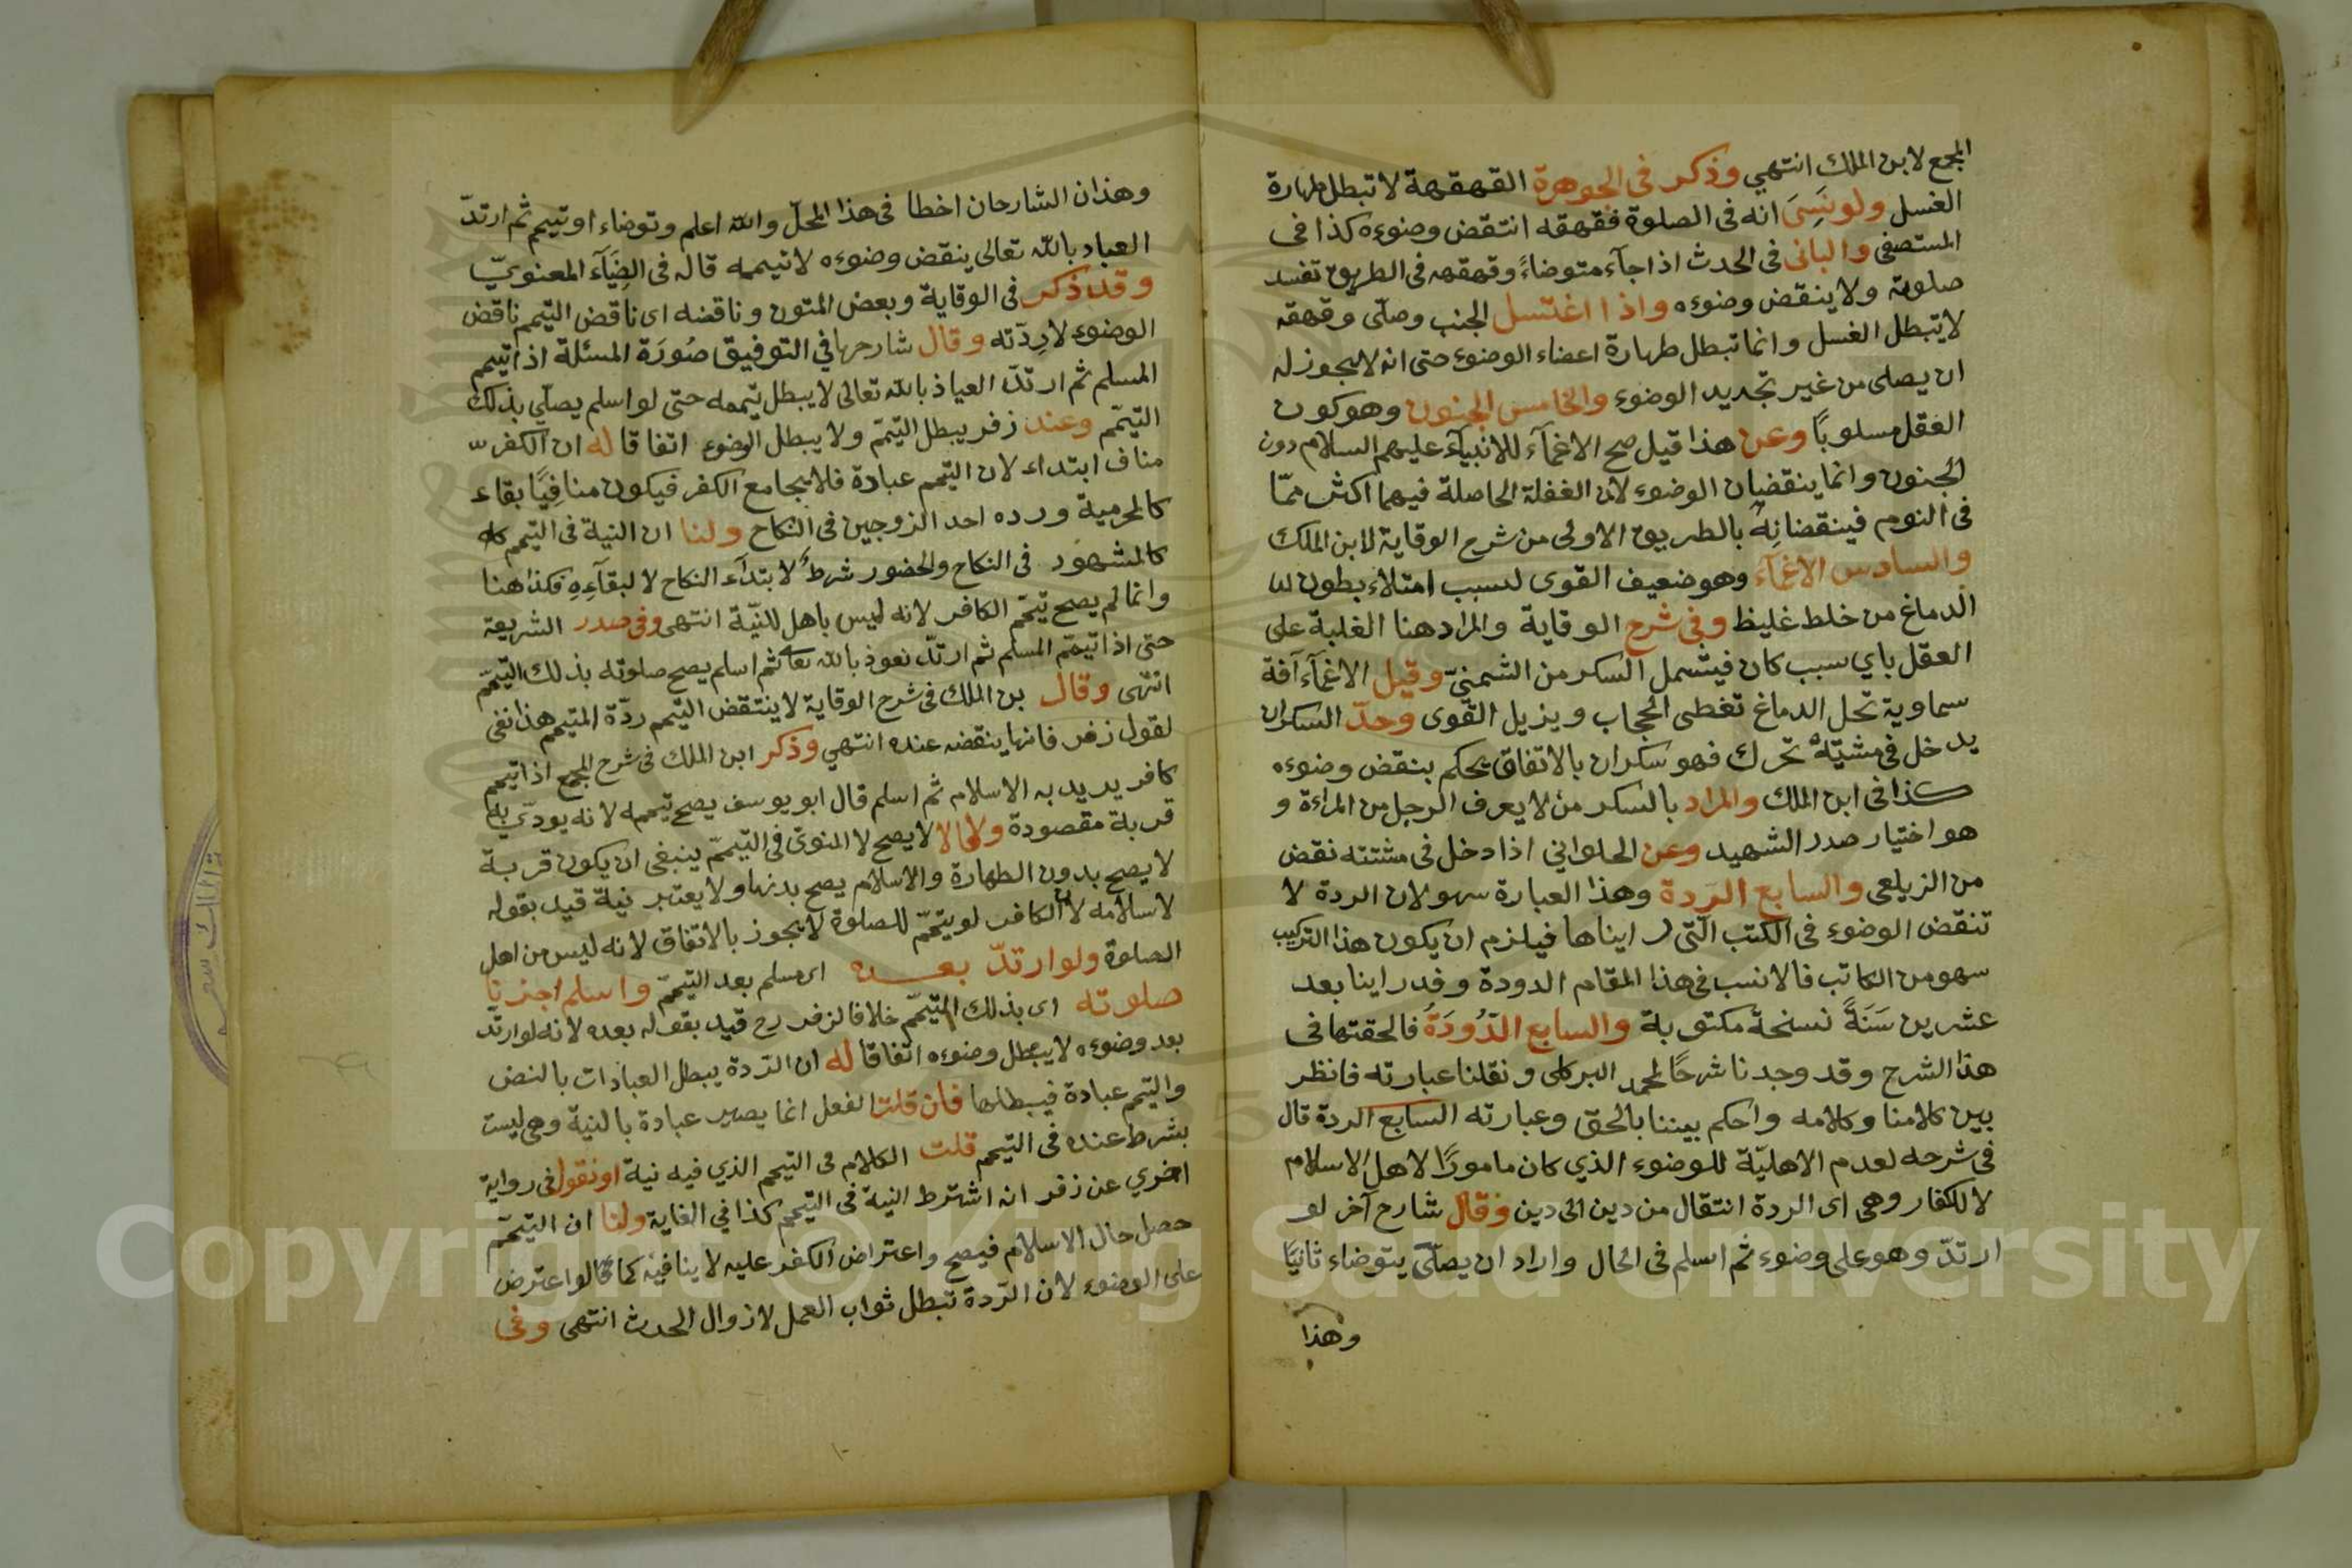 المجمع لابن الملك انتهي وذكر في الجوهرة القهقهة لا تبطل طهارة
الغسل ولو نَسِىَ انه في الصلوة فقهقه انتقض وضوءه كذا في
المستصفى والبانى في الحدث اذا جآء متوضاءً وقهقهه في الطريق تفسد
صلوته ولا ينقض وضوءه واذا اغتسل الجنب وصلّى وقهقه
لا يتبطل الغسل وانما تبطل طهارة اعضاء الوضوء حتى انه لا يجوز له
ان يصلى من غير تجديد الوضوء والخامس الجنون وهو كون
العقل مسلوبًا وعن هذا قيل صح الاغمآء للانبيآء عليهم السلام دون
الجنون وانما ينقضان الوضوء لان الغفلة الحاصلة فيهما اكثر ممّا
في النوم فينقضانِهُ بالطريق الاولى من شرح الوقاية لابن الملك
والسادس الاغمآء وهو ضعيف القوى لسبب امتلاء بطون
الدماغ من خلط غليظ وفي شرح الوقاية والمراد هنا الغلبة على
العقل باي سبب كان فيشمل السكر من الشمنيّ وقيل الاغمآء آفة
سماوية تحل الدماغ تغطى الحجاب ويزيل القوى وحدّ السكران
يدخل في مشيّته تحرك فهو سكران بالاتفاق يحكم بنقض وضوءه
كذا في ابن الملك والمراد بالسكر من لا يعرف الرجل من المراءة و
هو اختيار صدر الشهيد وعن الحلواني اذا دخل في مشتته نقض
من الزيلعى والسابع الرّدة وهذا العبارة سهو لان الردة لا
تنقض الوضوء في الكتب الّتى رايناها فيلزم ان يكون هذا التركيب
سهو من الكاتب فالانسب في هذا المقام الدودة وقد راينا بعد
عشرين سَنَةً نسخة مكتوبة والسابع الدّودَةُ فالحقتها في
هذا الشرح وقد وجدنا شرحًا لمحمد البركلى ونقلنا عبارته فانظر
بين كلامنا وكلامه واحكم بيننا بالحق وعبارته السابع الردة قال
في شرحه لعدم الاهليّة للوضوء الذي كان مامورًا لاهل الاسلام
لا للكفار وهى اى الردة انتقال من دين الى دين وقال شارح آخر لو
ارتدّ وهو على وضوء ثم اسلم في الحال واراد ان يصلّى يتوضاء ثانيًا
وهذا
وهذان الشارحان اخطا في هذا المحلّ والله اعلم وتوضاء او تيمم ثم ارتدّ
العياد بالله تعالى ينقض وضوءه لا تيممه قاله في الضِيَآء المعنويّ
وقد ذكر في الوقاية وبعض المتون وناقضه اى ناقض التيمم ناقض
الوضوء لا رِدّته وقال شارحها في التوفيق صُورَة المسئلة اذا تيمم
المسلم ثم ارتدّ العياذ بالله تعالى لا يبطل تيممه حتى لو اسلم يصلّي بذلك
التيمّم وعند زفر يبطل التيمّم ولا يبطل الوضوء اتفاقا له ان الكفر
مناف ابتداء لان التيمم عبادة فلا يجامع الكفر فيكون منافِيًا بقاء
كالمحرمية ورده احد الزوجين في النكاح ولنا ان النية في التيمم
كالمشهود في النكاح والحضور شرط لابتدآء النكاح لا لبقآءِهِ فكذا هنا
وانما لم يصح تيمّم الكافر لانه ليس باهل للنيّة انتهى وفي صدر الشريعة
حتى اذا تيمّم المسلم ثم ارتدّ نعوذ بالله تعا ثم اسلم يصح صلوته بذلك التيمّم
انتهى وقال بن الملك في شرح الوقاية لا ينتقض التيمم ردّة المتيمم هذا نفى
لقول زفر فانها ينقضه عنده انتهي وذكر ابن الملك في شرح المجمع اذا تيمم
كافر يريد به الاسلام ثم اسلم قال ابو يوسف يصح تيممه لانه يودّي به
قربة مقصودة وقالا لا يصح لا المنوى في التيمّم ينبغى ان يكون قربة
لا يصح بدون الطهارة والاسلام يصح بدنها ولا يعتبر نية قيد بقوله
لاسلامه لان الكافر لو يتمّم للصلوة لا يجوز بالاتفاق لانه ليس من اهل
الصلوة ولو ارتدّ بعده اى مسلم بعد التيمّم واسلم اجزنا
صلوته اى بذلك التيمّم خلافا لزفر رح قيد بقوله بعده لانه لو ارتدّ
بعد وضوءه لا يبطل وضوءه اتفاقا له ان الرّدة يبطل العبادات بالنص
والتيمم عبادة فيبطلها فان قلت الفعل انما يصير عبادة بالنية وهى ليست
بشرط عنده في التيمم قلت الكلام في التيمم الذي فيه نية او نقول في رواية
اخري عن زفر انه اشترط النية في التيمم كذا في الغاية ولنا ان التيمّم
حصل حال الاسلام فيصح واعتراض الكفر عليه لا ينافيه كما قالوا اعترض
على الوضوء لان الرّدة تبطل ثواب العمل لا زوال الحدث انتهى وفى
Copyright © King Saud University